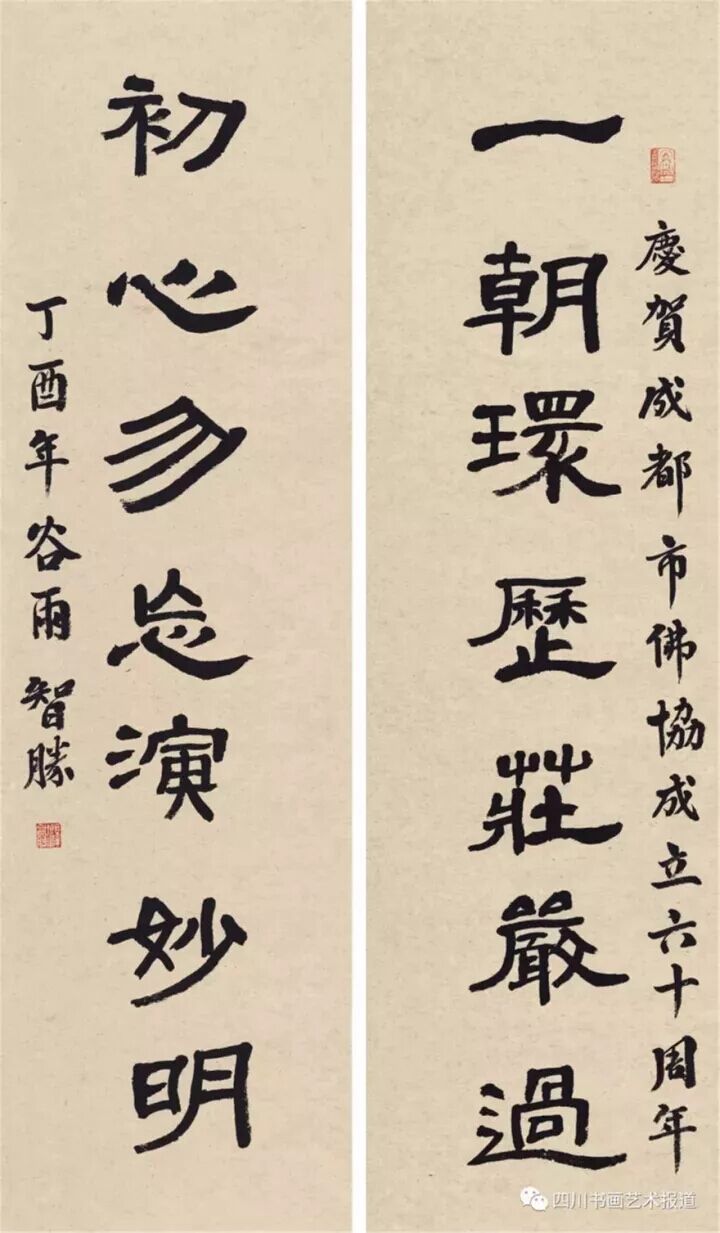 慶賀成都市佛協成立六十周年
一朝環歷莊嚴過
初心勿忘演妙明
丁酉年谷雨 智勝
四川书画艺术报道